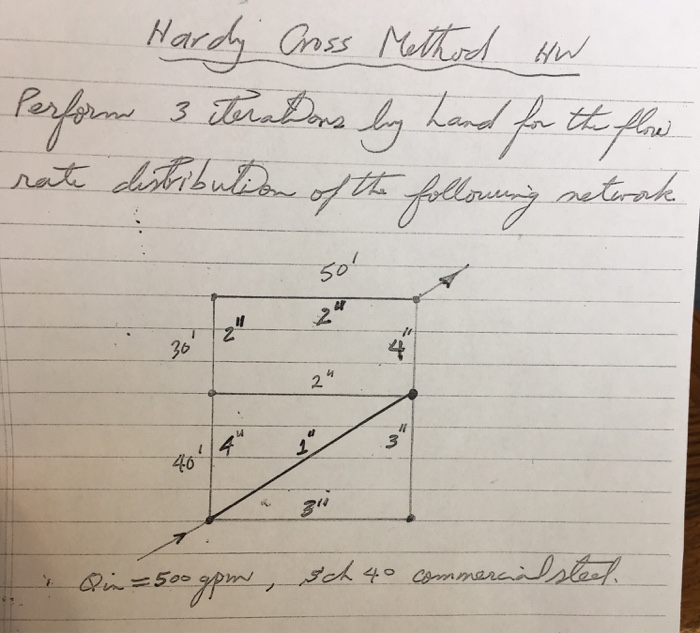 Hardy Cross Method HW
Perform 3 iterations by hand for the flow
rate distribution of the following network
50'
2"
30' 2" 4"
2"
40' 4" 1" 3"
3"
Qin = 500 gpm, sch 40 commercial steel.